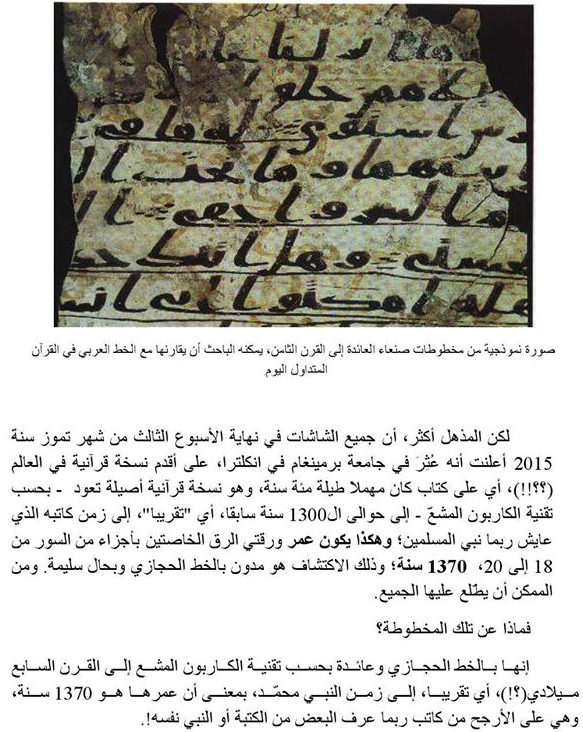 صورة نموذجية من مخطوطات صنعاء العائدة إلى القرن الثامن، يمكنه الباحث أن يقارنها مع الخط العربي في القرآن
المتداول اليوم
لكن المذهل أكثر، أن جميع الشاشات في نهاية الأسبوع الثالث من شهر تموز سنة
2015 أعلنت أنه عُثِرَ في جامعة برمينغام في انكلترا، على أقدم نسخة قرآنية في العالم
(؟؟!!)، أي على كتاب كان مهملا طيلة مئة سنة، وهو نسخة قرآنية أصيلة تعود - بحسب
تقنية الكاربون المشعّ - إلى حوالى ال1300 سنة سابقا، أي "تقريبا"، إلى زمن كاتبه الذي
عايش ربما نبي المسلمين؛ وهكذا يكون عمر ورقتي الرق الخاصتين بأجزاء من السور من
18 إلى 20، 1370 سنة؛ وذلك الاكتشاف هو مدون بالخط الحجازي وبحال سليمة. ومن
الممكن أن يطّلع عليها الجميع.
فماذا عن تلك المخطوطة؟
إنها بالخط الحجازي وعائدة بحسب تقنية الكاربون المشع إلى القرن السابع
ميلادي(؟!)، أي تقريبا، إلى زمن النبي محمّد، بمعنى أن عمرها هو 1370 سنة،
وهي على الأرجح من كاتب ربما عرف البعض من الكتبة أو النبي نفسه!.